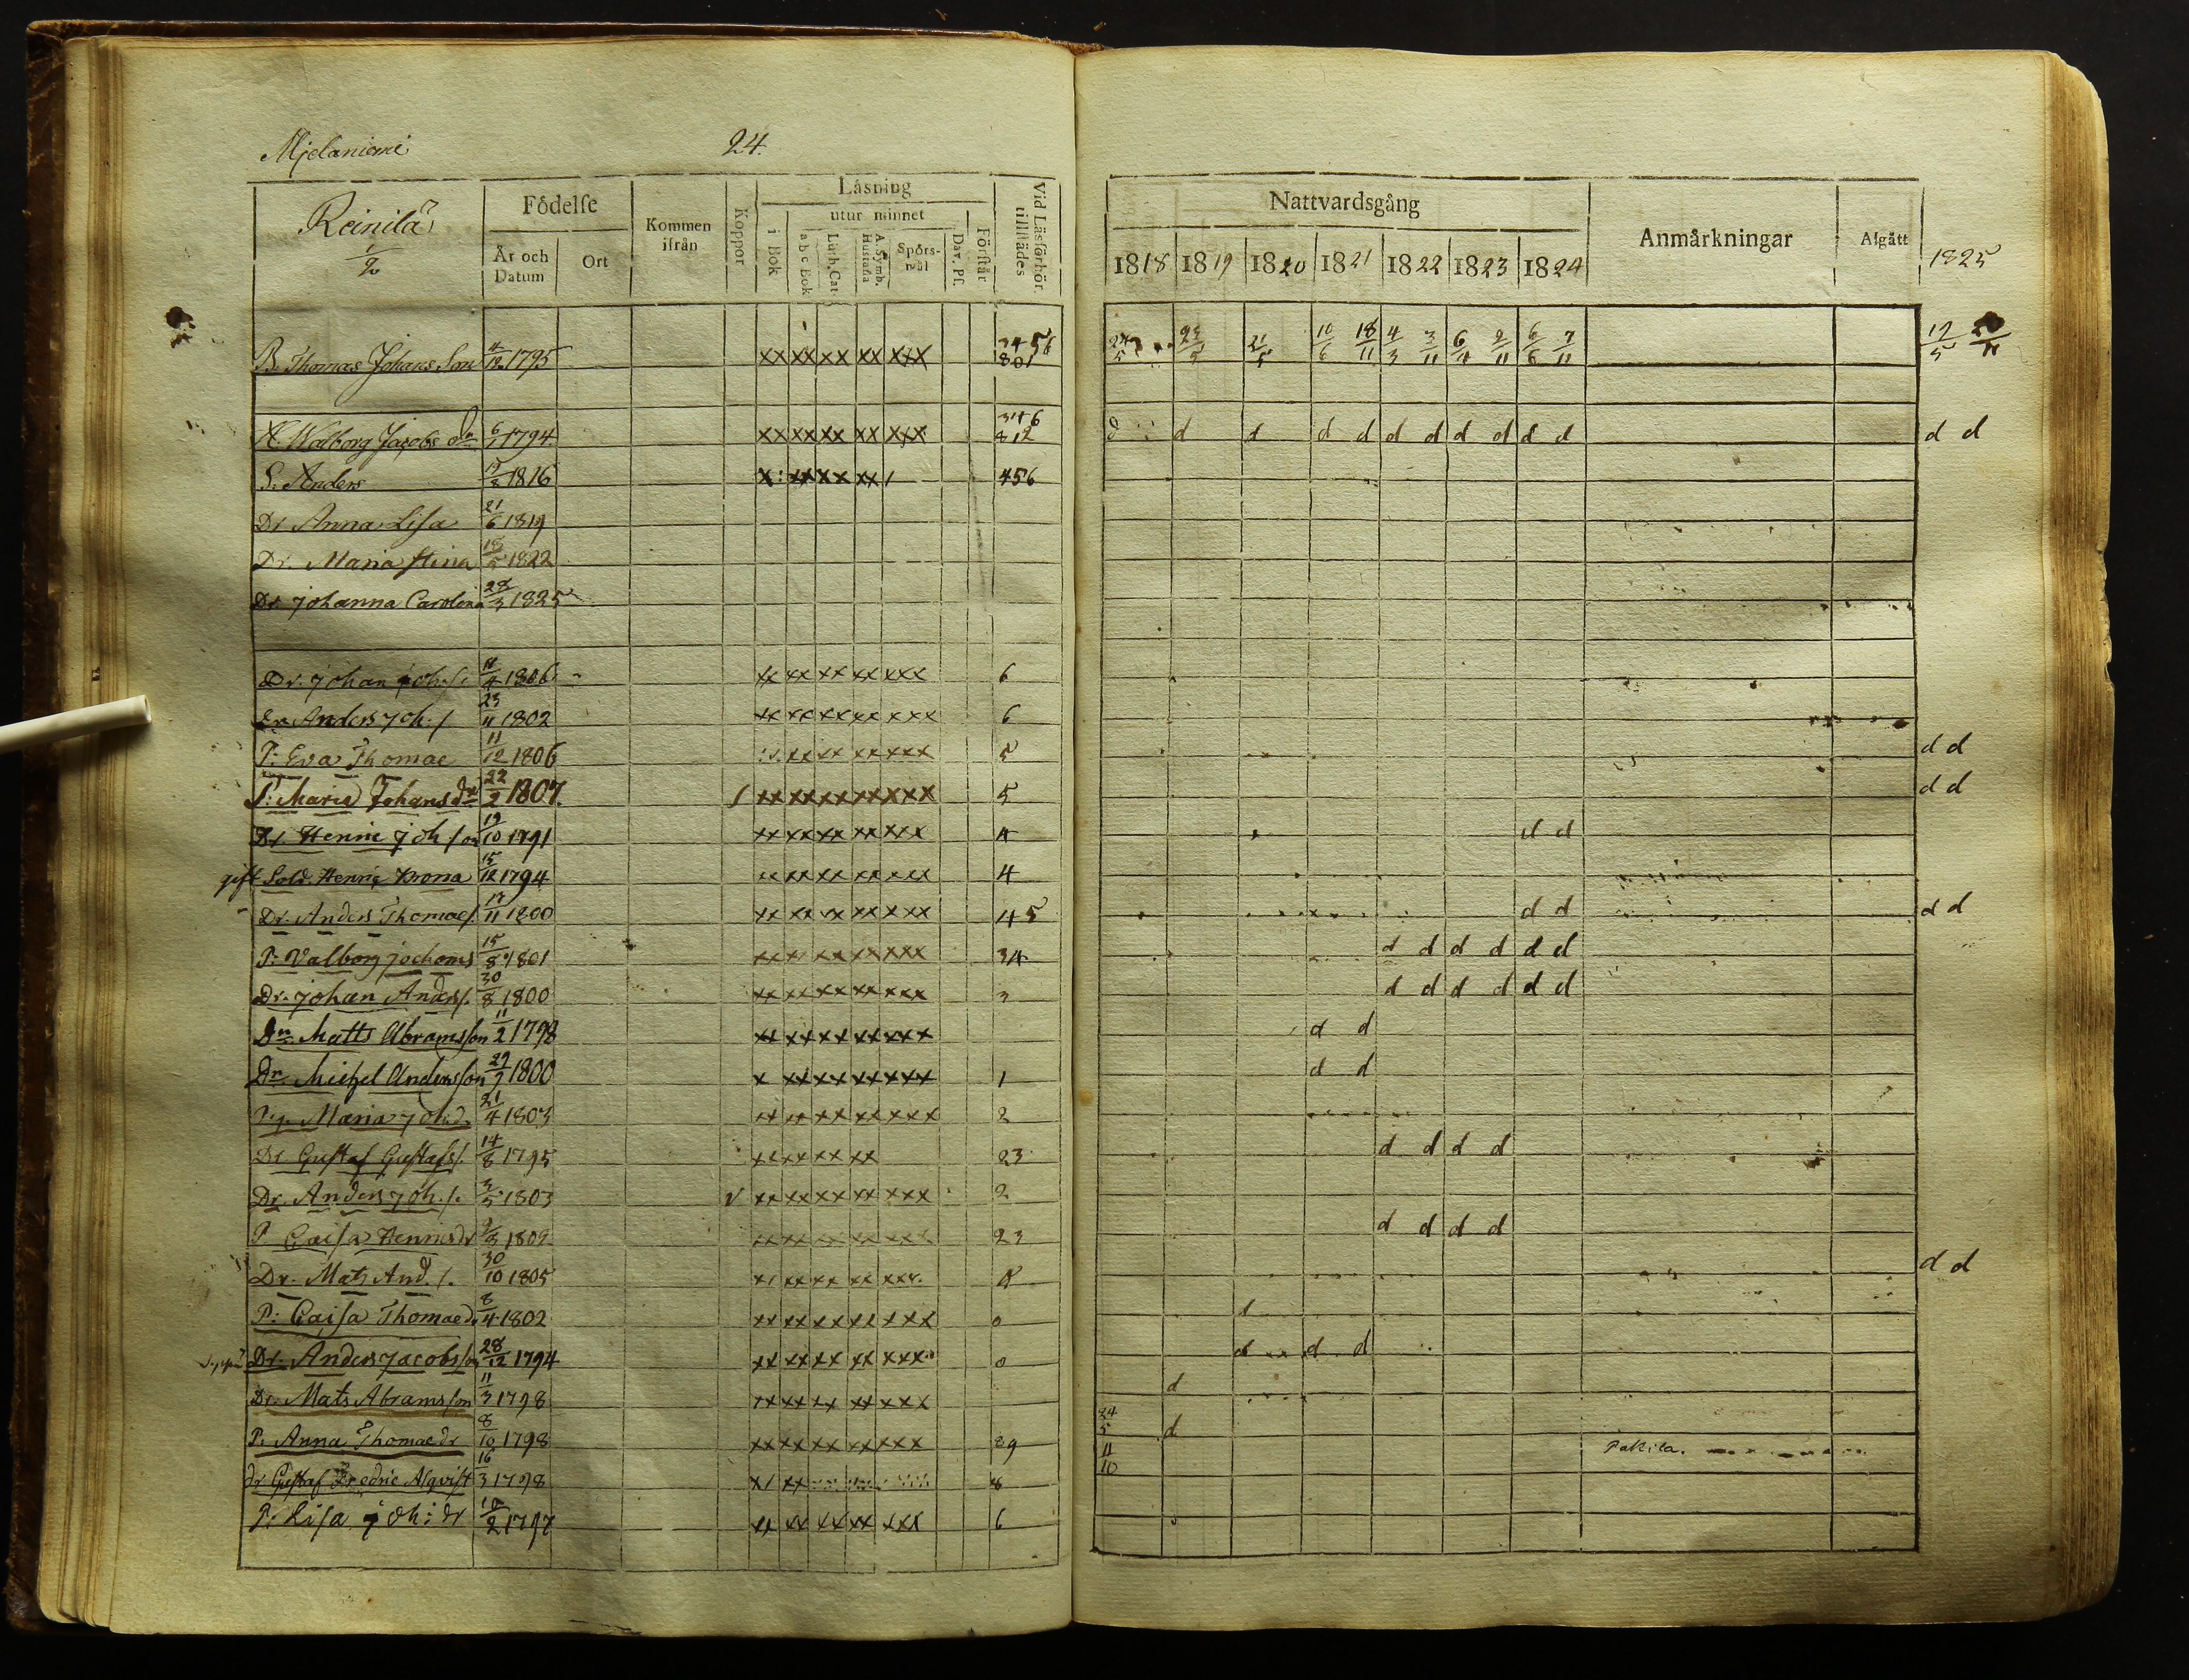 Mjelaniemi 24.
Reinilä
1/2
Födelse
År och Datum
Ort
Kommen ifrån
Koppor
Läsning
i Bok
utur minnet
a b c Bok
Luth. Cat.
A. Symb. Hustafla
Spörsmål
Dav. Ps.
Förstår
Vid Läsförhör tillstädes
Nattvardsgång
1818 1819 1820 1821 1822 1823 1824
Anmärkningar
Afgått
1825
B. Thomas Johans Son 4/12 1795 xx xx xx xx xxx 3456 801 24/5 23/5 21/5 10/6 18/11 4/3 3/11 6/4 9/11 6/6 7/11 19/5
H. Walborg Jacobs dr 6/1 1794 xx xx xx xx xxx 346 812 d d d d d d d d d d d d d
S. Anders 1816 x: xx xx xx / 456
Dr Anna Lisa 21/6 1819
Dr. Maria Stina 18/5 1822
Dr Johanna Carolina 28/3 1825
Dr. Johan Joh.s. 11/4 1806 xx xx xx xx xxx 6
Dr. Anders Joh. s. 23/11 1802 xx xx xx xx xxx 6
P: Eva Thomae 11/12 1806 xx xx xx xxx 5 d d
P: Maria Johans dr 22/2 1807. / xx xx xx xx xxx 5 d d
Dr. Henric Joh son 19/10 1791 xx xx xx xx xxx 4 d d
gift Sold. Henric Brona 15/12 1794 xx xx xx xx xxx 4
Dr. Anders Thomae s. 17/11 1800 xx xx xx xx xxx 45 d d d d
P: Valborg Jochoms 15/8 1801 xx xx xx xx xxx 34 d d d d d d
Dr. Johan Anders s. 30/8 1800 xx xx xx xx xxx 3 d d d d d d
Dr. Matts Abramsson 11/2 1798 xx xx xx xx xxx d d
Dr. Michel Andersson 29/9 1800 x xx xx xx xxx 1 d d
Pig. Maria Joh.d. 21/4 1803 xx xx xx xx xxx 2
Dr Gustaf Gustafs s. 14/8 1795 xx xx xx xx 23 d d d d
Dr. Anders Joh. s. 3/5 1803 v xx xx xx xx xxx 2
P Caisa Henrics dr 1802 xx xx xx xx xxx 23 d d d d
Dr. Mats And. s. 30/10 1805 x/ xx xx xx xxx. 5 d d
P: Caisa Thomae d. 8/4 1802 xx xx xx xx xxx 0 d
Dr. Anders Jacobsson 28/12 1794 xx xx xx xx xxx 0 d d d
Dr. Mats Abramsson 11/3 1798 xx xx xx xx xxx d
P. Anna Thomae dr 8/10 1798 xx xx xx xx xxx 89 24/5 11/10 d Pakila.
dr Gustaf Fredric Alqvist 16/3 1798 x/ xx 8
P: Lisa Joh: dr 1797 xx xx xx xx xxx 6